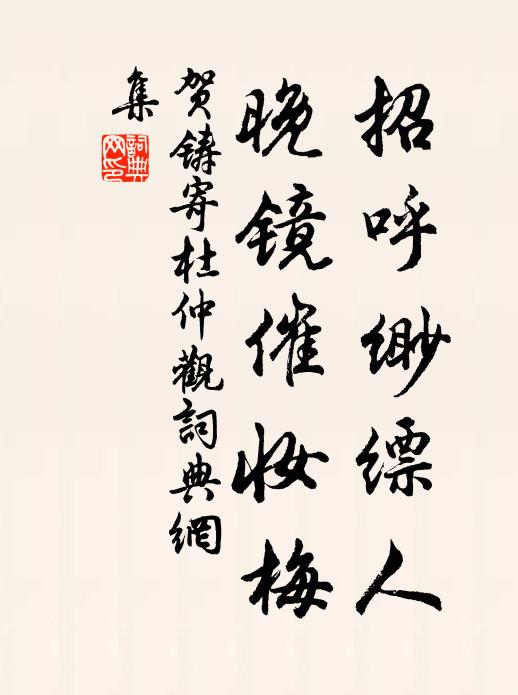 招呼缈缥人
晚镜催妆梅
贺铸寄杜仲觀詞典網
集
詞典
网印